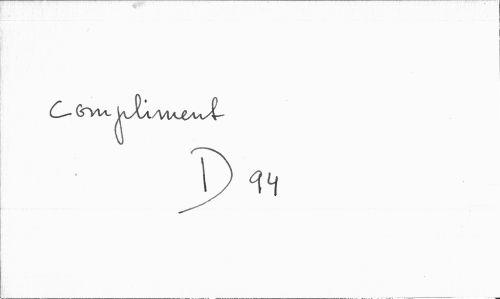 Compliment
D 94